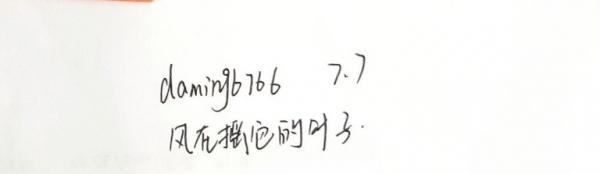 daming6766 7.7
风在摇它的叶子.